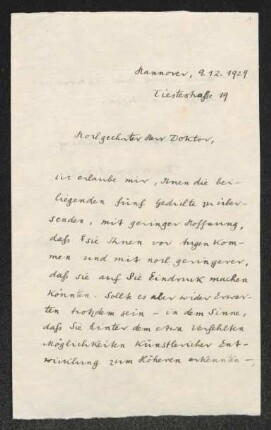 Hannover, 9.12.1929
Tiestestraße 19
Hochgeehrter Herr Doktor,
ich erlaube mir, Ihnen die bei-
liegenden fünf Gedichte zu über-
senden, mit geringer Hoffnung,
daß sie Ihnen vor Augen kom-
men und mit noch geringerer,
daß sie auf Sie Eindruck machen
könnten. Sollte es aber wider Erwar-
ten trotzdem sein – in dem Sinne,
daß Sie hinter dem etwa verfehlten
Möglichkeiten künstlerischer Ent-
wicklung zum Höheren erkennten –,